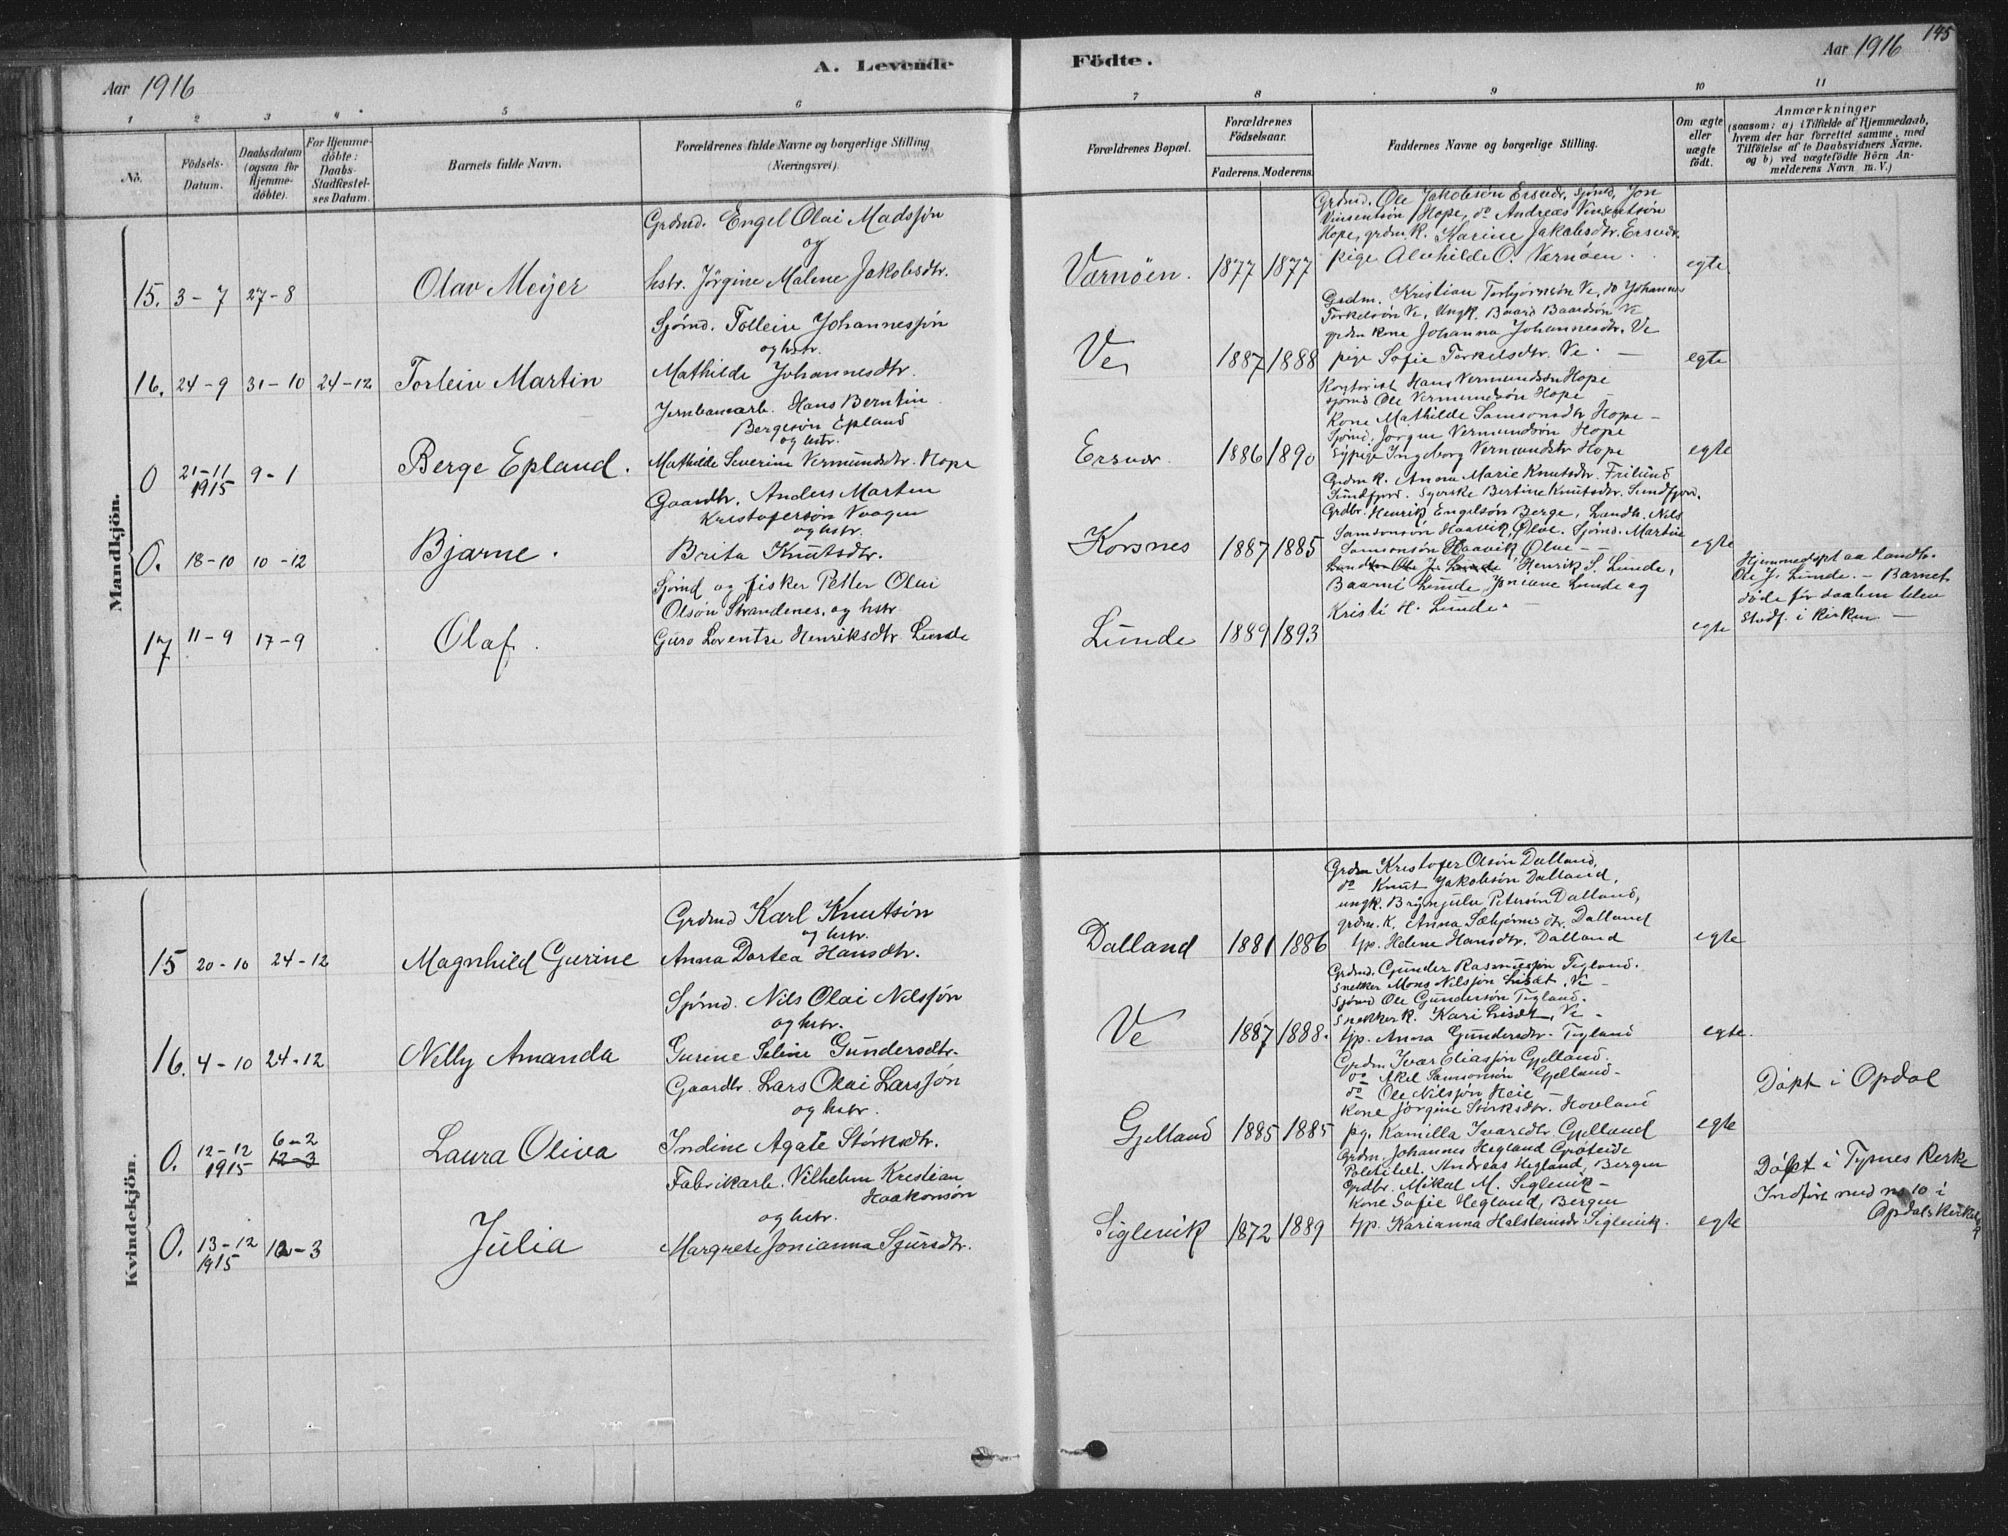 145
Aar 1916
A. Levende
Födte.
Aar 1916
1 2 3 4 5 6 7 8 9 10 11
No.
Födsels-Datum.
Daabsdatum (ogsaa for Hjemmedöbte).
For Hjemmedöbte: Daabs-Stadfæstelses Datum.
Barnets fulde Navn.
Forældrenes fulde Navne og borgerlige Stilling (Næringsvei).
Forældrenes Bopæl.
Forældrenes Födselsaar.
Faderens. Moderens.
Faddernes Navne og borgerlige Stilling.
Om ægte eller uægte födt.
Anmærkninger
(saasom: a) i Tilfælde af Hjemmedaab,
hvem der har forrettet samme, med
Tilföielse af to Daabsvidners Navne.
og b) ved uægtefödte Börn An-
melderens Navn m. V.)
Mandkjön.
15. 3-7 27-8
Olav Meyer
Grdmd. Engel Olai Madssön
og
hstr. Jörgine Malene Jakobsdtr.
Værnöen. 1877 1877
Grdmd. Ole Jakobsön Ersvær, Sjömd, Jon
Vinsentsön Hope, do Andreas Vinsentsön
Hope, grdm k. Karine Jakobsdtr. Ersvær
pige Alvhilde O. Værnöen.
egte
16. 24-9 31-10 24-12
Torleiv Martin
Sjömd. Tolleiv Johannessön
og hstr.
Mathilde Johannesdtr.
Ve 1887 1888
Grdm. Kristian Torbjörnsön Ve, do Johannes
Torkelsön Ve, Ungk. Baard Baardsön Ve
grdm kone Johanna Johannesdtr. Ve
pige Sofie Torkelsdtr. Ve.
egte
O 21-11 1915 9-1
Berge Epland.
Jernbanearb. Hans Berntin
Bergesön Epland
og hstr.
Mathilde Severine Vermundsdtr. Hope
Ersvær 1886 1890
Kontorist Hans Vermundsön Hope
sjömd Ole Vermundsön Hope
Kone Mathilde Samsonsdtr Hope
Sjömd, Jörgen Vermundsön Hope
Sypige Ingeborg Vermundsdtr Hope
egte
O. 18-10 10-12
Bjarne.
Gaardbr. Anders Martin
Kristofersön Vaagen
og hstr.
Brita Knutsdtr.
Korsnes 1887 1885
Grdm k. Anna Marie Knutsdtr. Frilund
Sundfjord. Syerske Bertine Knutsdtr. Sundfjord.
Grdbr. Henrik Engelsön Berge, Landh. Nils
Samsonsön Haavik, Ölve. Sjömd. Martin
Samsonsön Haavik, Ölve
egte
17 11-9 17-9
Olaf.
Sjömd og fisker Petter Olai
Olsön Strandenes, og hstr
Guro Lorentse Henriksdtr Lunde
Lunde 1889 1893
Landh. Ole J. Lunde Henrik S. Lunde,
Baarni Lunde, Joniane Lunde og
Kristi H. Lunde.
egte
Hjemmedöpt aa landh.
Ole J. Lunde. - Barnet
döde för daaben blev
stadf. i kirken
Kvindekjön.
15 20-10 24-12
Magnhild Gurine
Grdmd Karl Knutsön
og hstr.
Anna Dortea Hansdtr.
Dalland 1881 1886
Grdm Kristofer Olsön Dalland,
do Knut Jakobsön Dalland,
ungk. Brynjulv Petersön Dalland,
grdm. k. Anna Sæbjörnsdtr. Dalland
tjp. Helene Hansdtr. Dalland
egte
16. 4-10 24-12
Nelly Amanda
Sjömd. Nils Olai Nilssön
og hstr.
Gurine Seline Gundersdtr.
Ve 1887 1888.
Grdmd. Gunder Rasmussön Tegland.
Snekker Mons Nilssön Lisæt, Ve
Sjömd Ole Gundersön Tegland.
Snekker k. Kari Lisæt, Ve
tjp. Anna Gundersdtr. Tegland
egte.
O. 12-12 1915 6-2 12-3
Laura Oliva
Gaardbr. Lars Olai Larssön
og hstr.
Indine Agate Störksdtr.
Gjelland 1885 1885
Grdm Ivar Eliassön Gjelland.
do Aksel Samsonsön Gjelland
do Ole Nilssön Heie
Kone Jörgine Störksdtr. Hovland
pg. Kamilla Ivarsdtr Gjelland
egte
Döbt i Opdal
O. 13-12 1915 12-3
Julia
Fabrikarb. Vilhelm Kristian
Haakonsön
og hstr.
Margrete Jonianna Sjursdtr.
Siglevik 1872 1889
Grdm. Johannes Hegland
Politibet. Andreas Hegland, Bergen
Grdbr. Mikal M. Siglevik
Kone Sofie Hegland, Bergen
tjp. Karianna Halsteinsdr Siglevik.
egte
Döbt i Tysnes Kirke
Indfört med no 10 i
Opdals Kirkebog